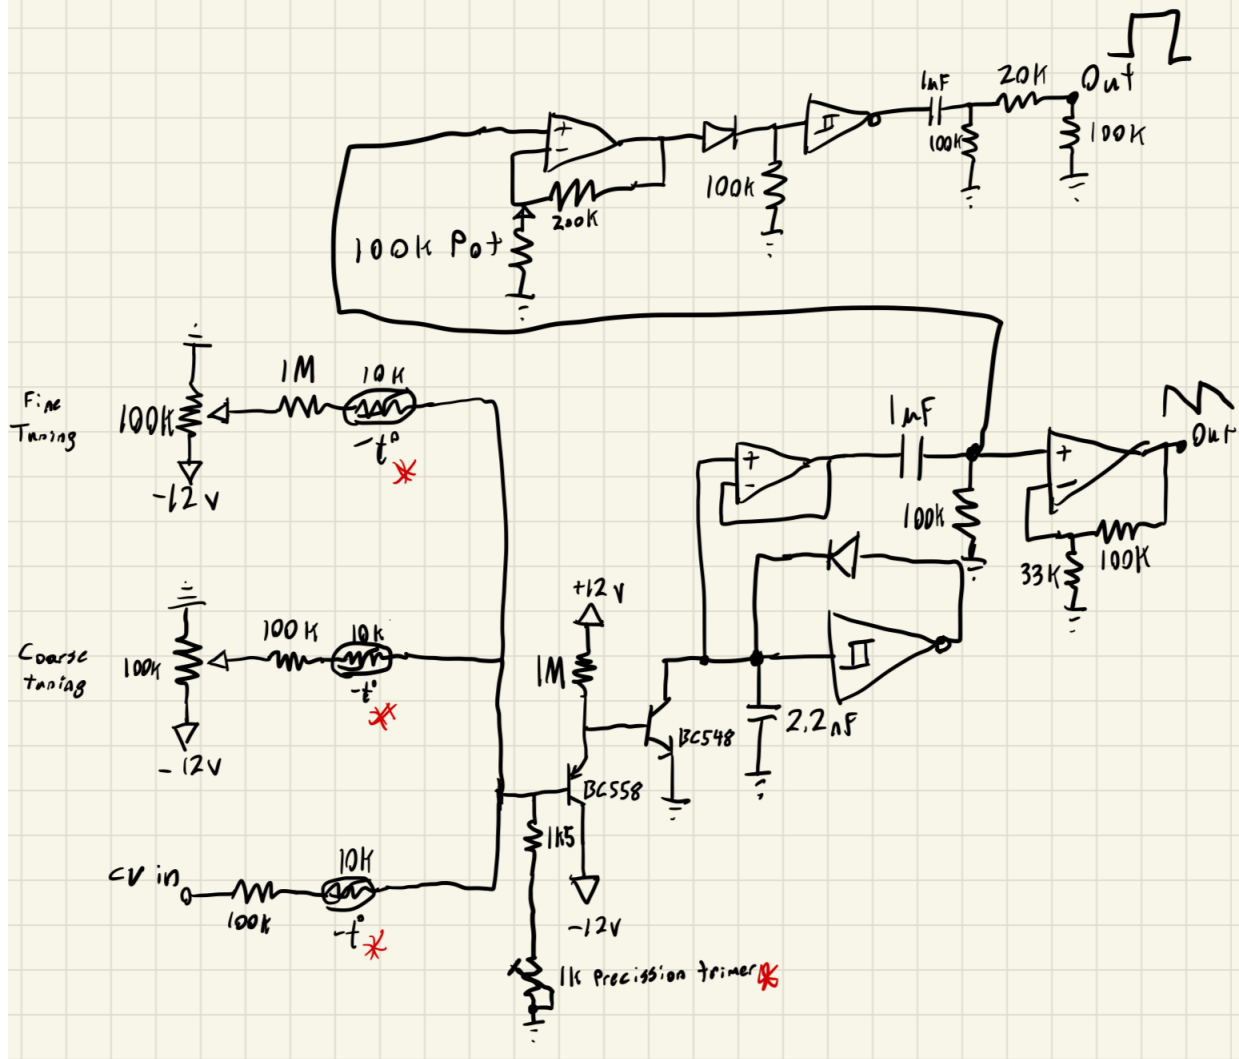 1uF
20K
Out
100K
100K
+
-
II
200K
100K
100K Pot
Fine
Tuning
100K
1M
10K
-t°
-12v
1uF
Out
+
-
+
-
100K
100K
33K
Coarse
tuning
100K
100K
10K
-t°
-12v
+12v
1M
II
BC548
2.2nF
BC558
1k5
-12v
CV in
100K
10K
-t°
1k Precission trimer